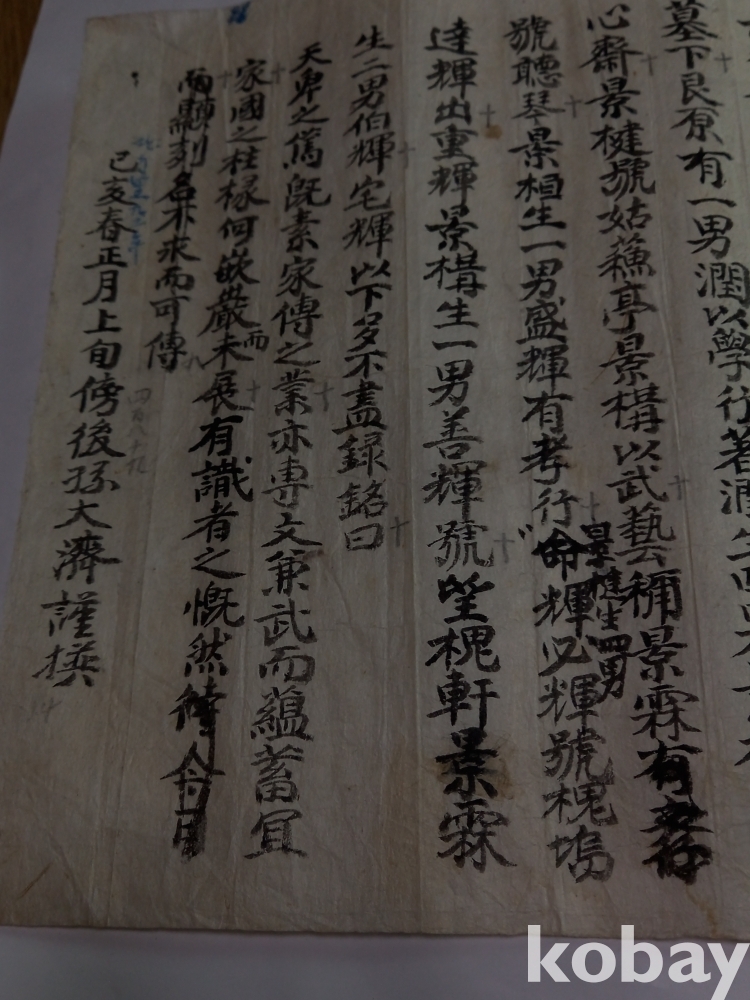 墓下艮原有一男潤以學行著潤生
心齋景楗號姑蘓亭景構以武藝稱景霖有孝行
景楗生四男
號聽琴景相生一男盛輝有孝行命輝必輝號槐塢
達輝出重輝景構生一男善輝號坐槐軒景霖
生二男伯輝宅輝以下多不盡録銘曰
天卑之篤旣素家傳之業亦專文兼武而蘊蓄宜
家國之柱椽何嵌巖而未展有識者之慨然
而顯刻名不求而可傳
己亥春正月上旬傍後孫大濟謹撰
kobay